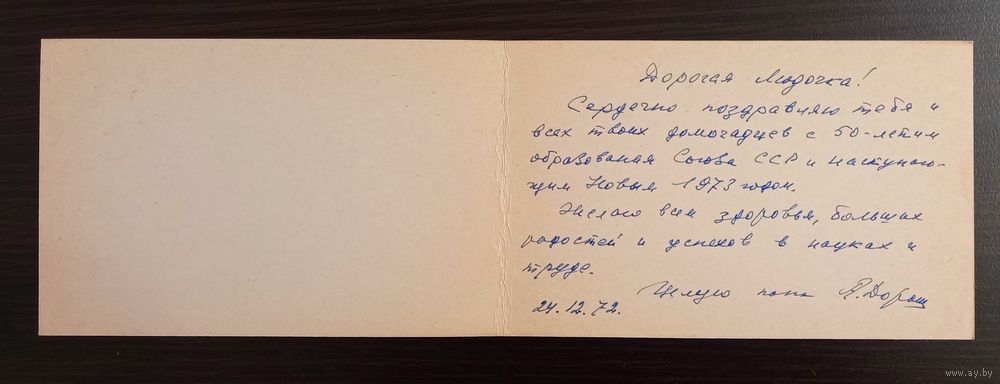 Дорогая Людочка!
Сердечно поздравляю тебя и
всех твоих домочадцев с 50-летим
образования Союза ССР и наступаю-
щим Новым 1973 годом.
Желаю всем здоровья, больших
радостей и успехов в науках и
труде.
Целую папа Я. Дорош
24.12.72.
www.ay.by